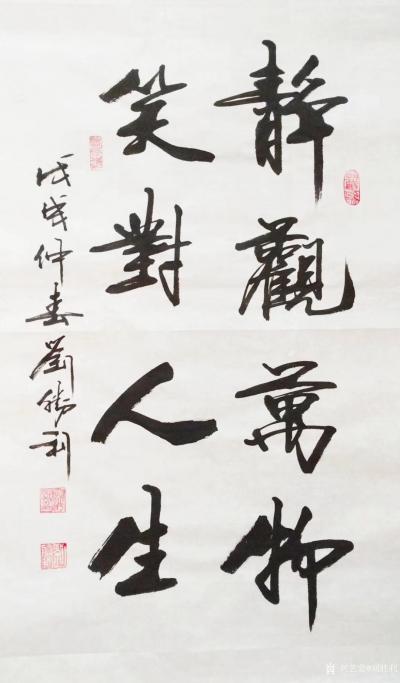 靜觀萬物
笑對人生
戊戌仲春劉勝利